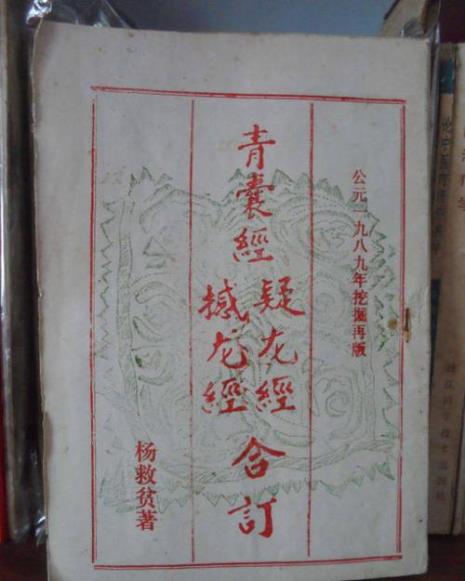 公元一九八九年挖掘再版
青囊經
疑龙經
撼龙經
合訂
杨救贫著